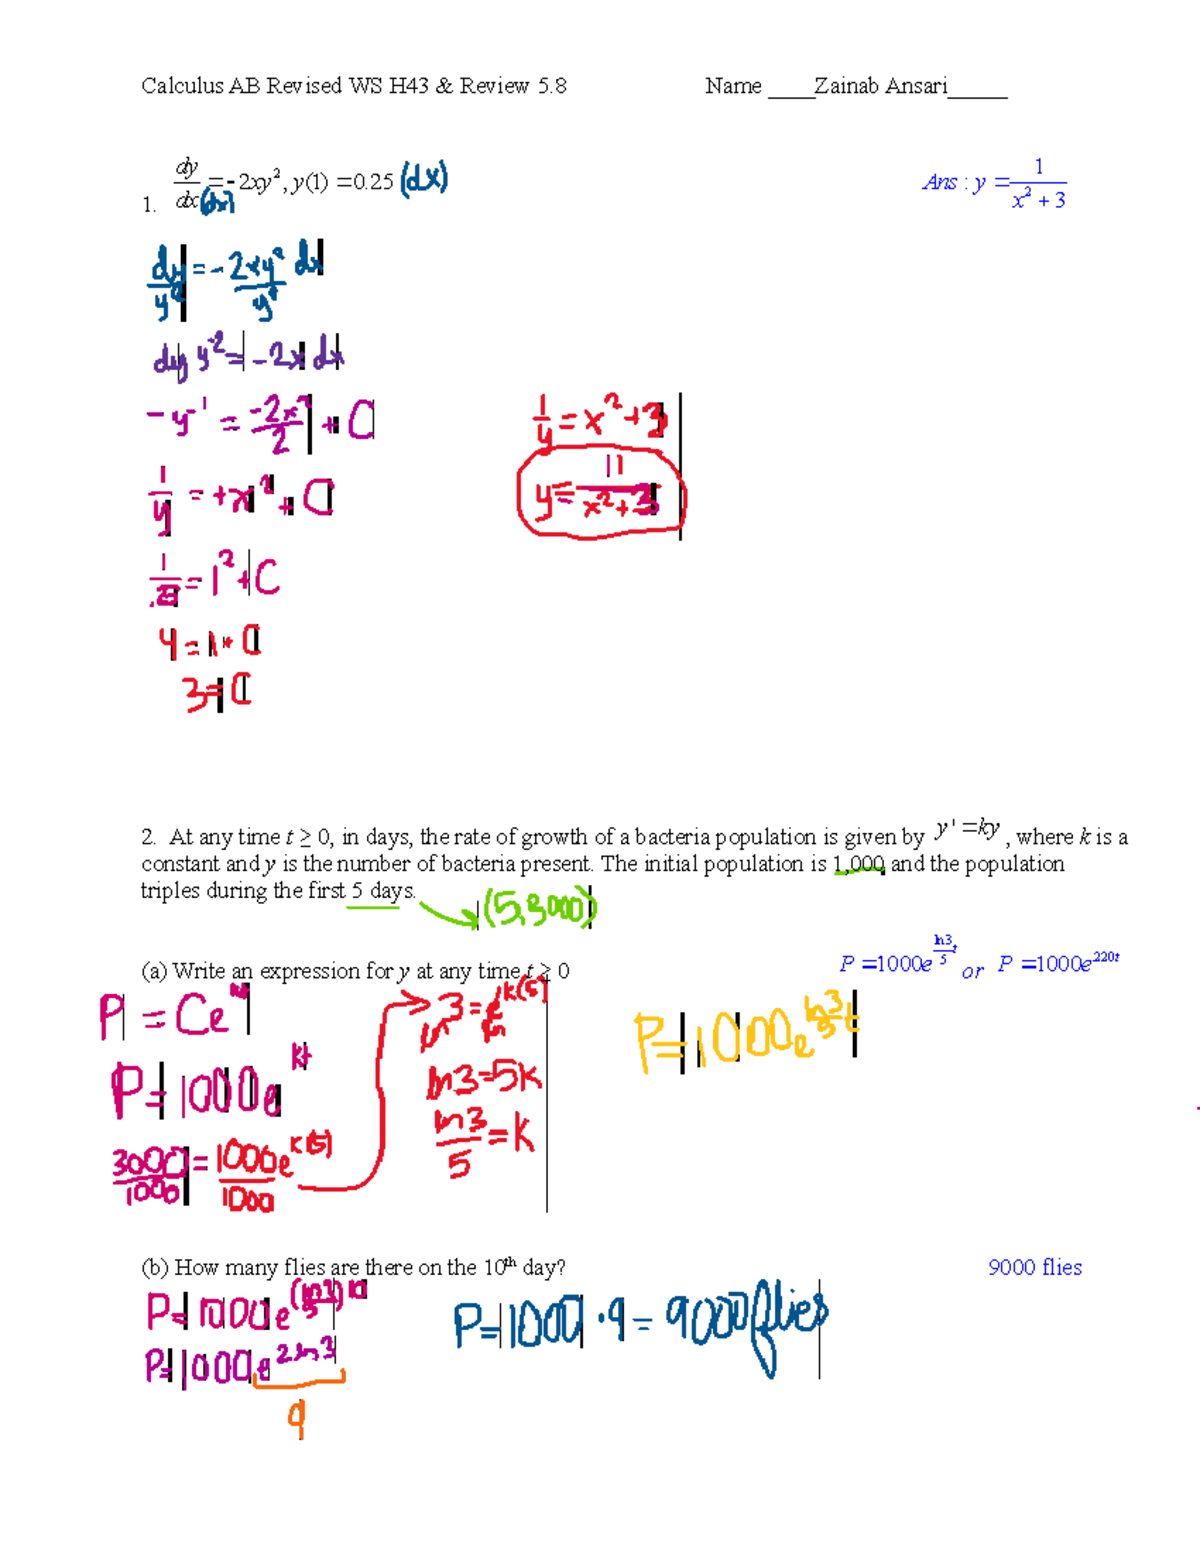 Calculus AB Revised WS H43 & Review 5.8 Name ____Zainab Ansari_____
1. dy/dx (dx) = -2xy², y(1) = 0.25 (dx) Ans : y = 1/(x² + 3)
dy/y² = -2xy²/y² dx
dy y⁻² = -2x dx
-y⁻¹ = -2x²/2 + C
1/y = +x² + C
1/.25 = 1² + C
4 = 1 + C
3 = C
1/y = x² + 3
y = 1/(x² + 3)
2. At any time t ≥ 0, in days, the rate of growth of a bacteria population is given by y' = ky, where k is a
constant and y is the number of bacteria present. The initial population is 1,000 and the population
triples during the first 5 days.
(5, 3000)
(a) Write an expression for y at any time t ≥ 0 P = 1000e^(ln3/5 t) or P = 1000e^(.220t)
P = Ce^(kt)
P = 1000e^(kt)
3000/1000 = 1000e^(k(5))/1000
ln 3 = ln e^(k(5))
ln3 = 5k
ln3/5 = k
P = 1000e^(ln3/5 t)
(b) How many flies are there on the 10th day? 9000 flies
P = 1000e^((ln3/5)10)
P = 1000e^(2ln3)
9
P = 1000 · 9 = 9000 flies